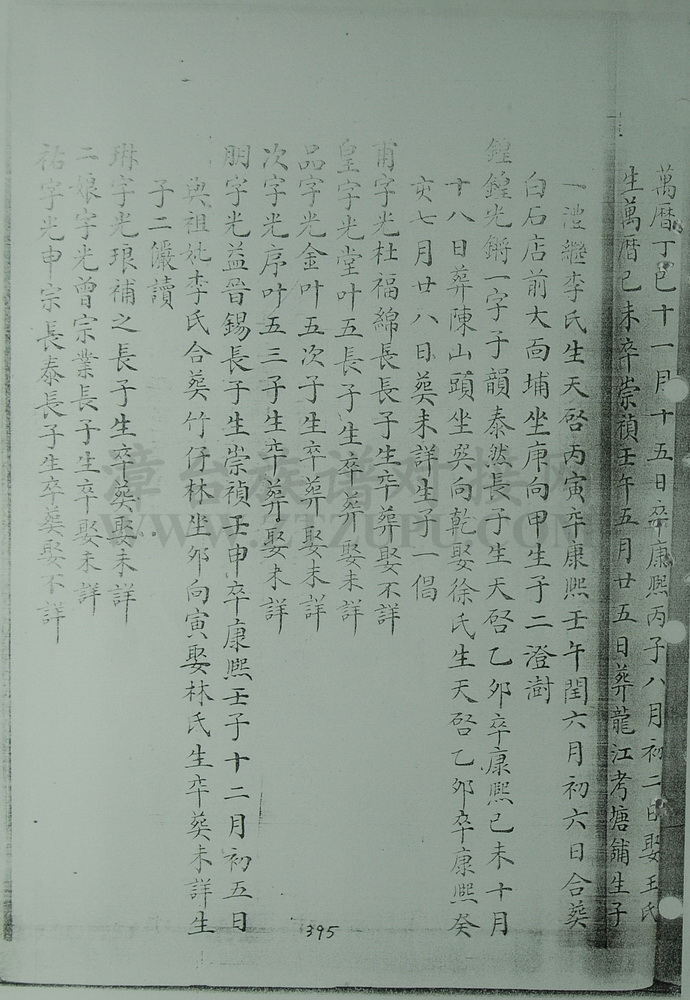 萬曆丁巳十一月十五日卒康熙丙子八月初二日娶王氏
生萬曆己未卒崇禎壬午五月廿五日葬龍江考塘鋪生子
一澧繼李氏生天啓丙寅卒康熙壬午閏六月初六日合葵
白石店前大面埔坐庚向甲生子二澄澍
鍠鍠光鏘一字子韻泰然長子生天啓乙夘卒康熙己未十月
十八日葬陳山頭坐巽向乾娶徐氏生天啓乙夘卒康熙癸
亥七月廿八日葵未詳生子一倡
甫字光杜福綿長長子生卒葬娶不詳
皇字光堂叶五長子生卒葬娶未詳
品字光金叶五次子生卒葬娶未詳
次字光序叶五三子生卒葬娶未詳
朋字光益晉錫長子生崇禎壬申卒康熙壬子十二月初五日
與祖妣李氏合葵竹仔林坐夘向寅娶林氏生卒葵未詳生
子二儼讀
琳字光琅補之長子生卒葵娶未詳
二娘字光曾宗業長子生卒娶未詳
祐字光申宗長泰長子生卒葵娶不詳
395
漳台族谱对接网
WWW.ZTZUPU.COM